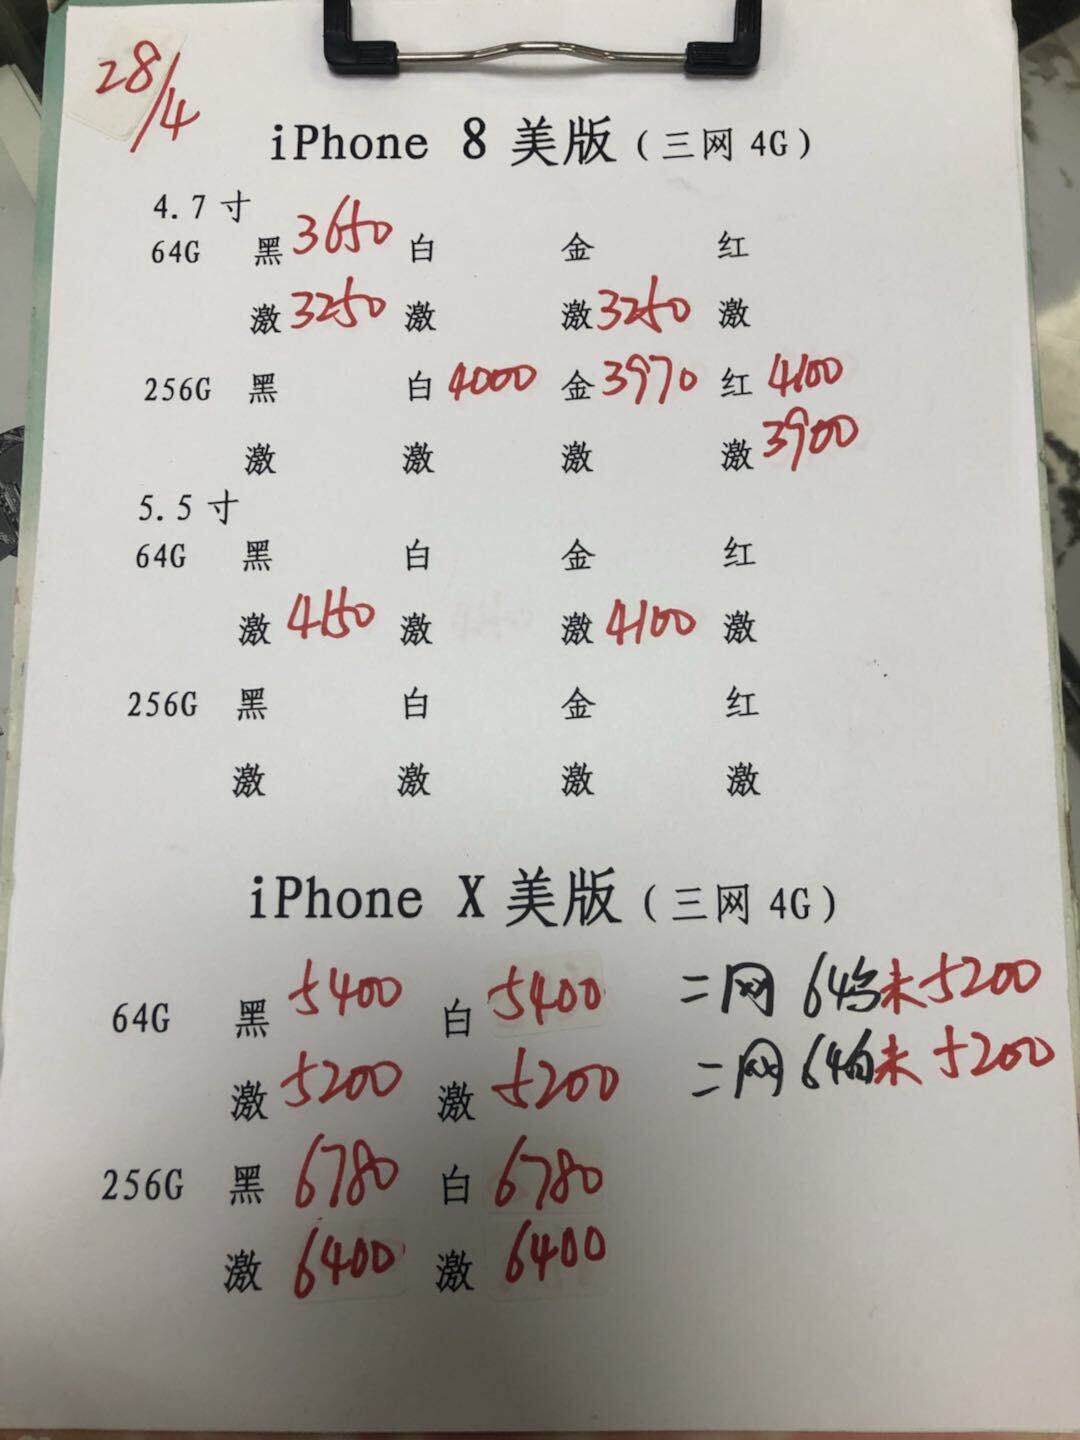 28/4
iPhone 8 美版（三网 4G）
4.7 寸
64G 黑 3650 白 金 红
激 3250 激 激 3250 激
256G 黑 白 4000 金 3970 红 4100
激 激 激 激 3900
5.5 寸
64G 黑 白 金 红
激 4150 激 激 4100 激
256G 黑 白 金 红
激 激 激 激
iPhone X 美版（三网 4G）
64G 黑 5400 白 5400 二网 64 未 5200
激 5200 激 5200 二网 64白未 5200
256G 黑 6780 白 6780
激 6400 激 6400